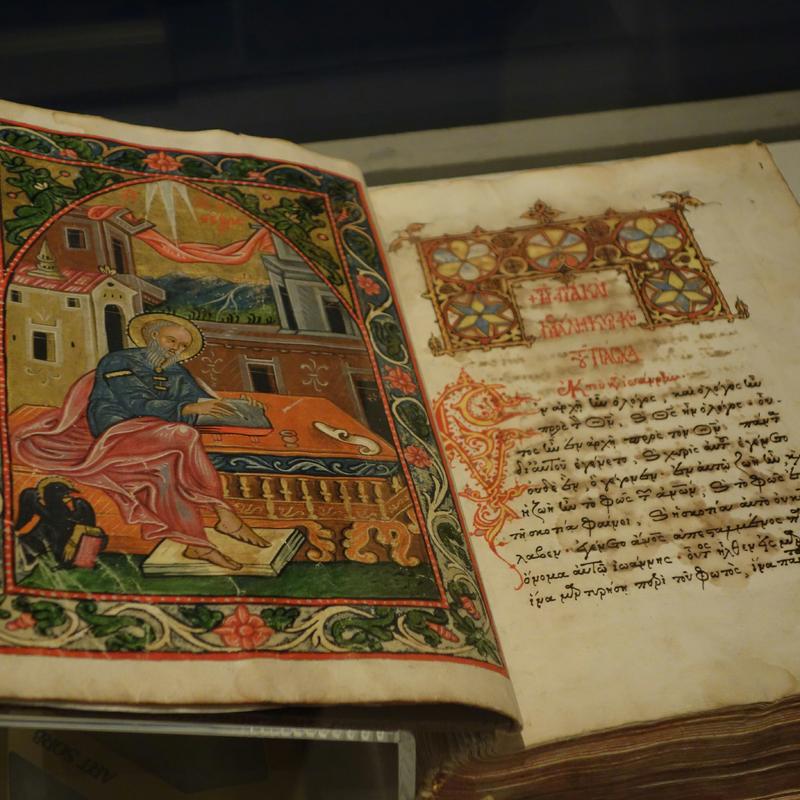 +ΤΗ ΑΓΙΑ ΚΑΙ
ΜΕΓΑΛΗ ΚΥΡΙΑΚΗ
ΤΟΥ ΠΑΣΧΑ
ἐν ἀρχῇ ἦν ὁ λόγος, καὶ ὁ λόγος ἦν
πρὸς τὸν Θν. καὶ Θς ἦν ὁ λόγος. οὗ
τος ἦν ἐν ἀρχῇ πρὸς τὸν Θν. πάντ
δι' αὐτοῦ ἐγένετο, καὶ χωρὶς αὐτ ἐγένετο
οὐδὲ ἓν, ὃ γέγονεν. ἐν αὐτῷ ζωὴ ἦν
ἡ ζωὴ ἦν τὸ φῶς τῶν ἀνων, καὶ τὸ φῶς
τῇ σκοτία φαίνει, καὶ ἡ σκοτία αὐτὸ οὐ
λαβεν. ἐγένετο ἄνος ἀπεσταλμένος
ὄνομα αὐτῷ ἰωάννης. οὗτος ἦλθεν εἰς
ἵνα μαρτυρήσῃ περὶ τοῦ φωτὸς, ἵνα